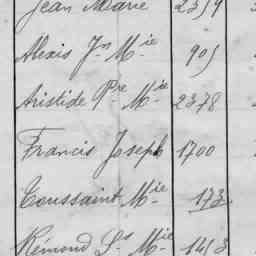 Jean Marie 2359
Alexis Jn Mie 905
Aristide Pre Mie 2378
Francis Joseph 1700
Toussaint Mie 173
Rémond Ls Mie 1413